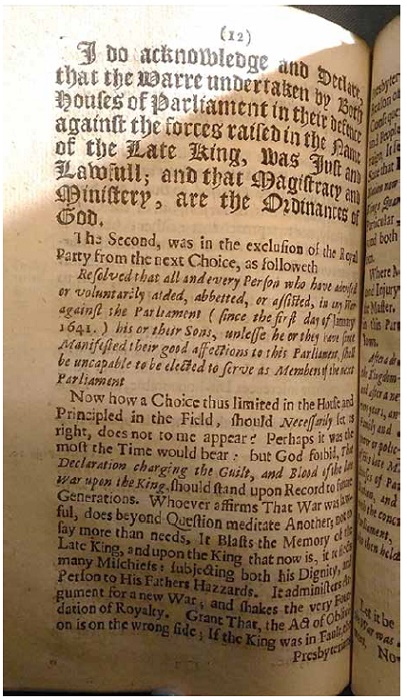 (12)
I do acknowledge and Declare,
that the Warre undertaken by Both
Houses of Parliament in their defence
against the forces raised in the Name
of the Late King, was Just and
Lawfull; and that Magistracy and
Ministery, are the Ordinances of
God.
The Second, was in the exclusion of the Royal
Party from the next Choice, as followeth
Resolved that all and every Person who have advised
or voluntarily aided, abbetted, or assisted, in any War
against the Parliament (since the first day of January
1641.) his or their Sons, unlesse he or they have since
Manifested their good affections to this Parliament, shall
be uncapable to be elected to serve as Members of the next
Parliament
Now how a Choice thus limited in the House, and
Principled in the Field, should Necessarily set us
right, does not to me appear? Perhaps it was the
most the Time would bear: but God forbid, That
Declaration charging the Guilt, and Blood of the late
War upon the King, should stand upon Record to future
Generations. Whoever affirms That War was law-
ful, does beyond Question meditate Another; not to
say more than needs, It Blasts the Memory of the
Late King, and upon the King that now is, it reflects
many Mischiefs: subjecting both his Dignity, and
Person to His Fathers Hazzards. It administers Ar-
gument for a new War, and shakes the very Foun-
dation of Royalty. Grant That, the Act of Oblivi-
on is on the wrong side; If the King was in Fault,
Presbyterians